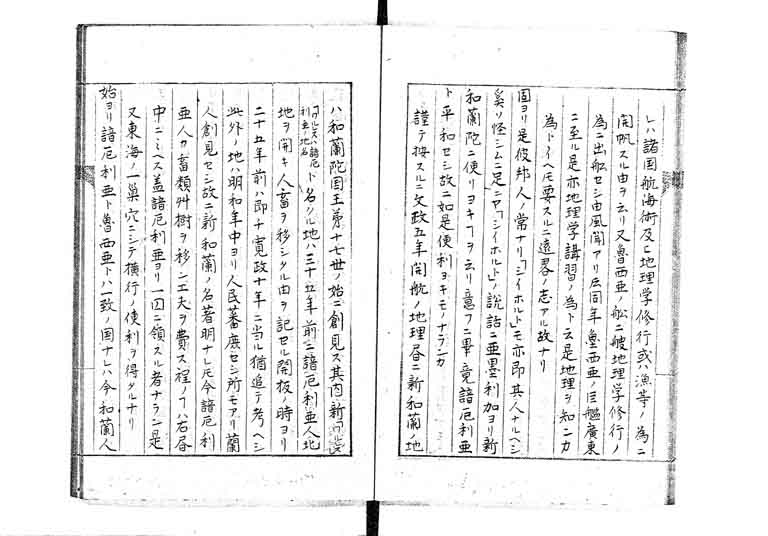 レハ諸国航海術及ヒ地理学修行或ハ漁等ノ為ニ
開帆スル由ヲ云リ又魯西亜ノ船二艘地理学修行ノ
為ニ出船セシ由風聞アリ𪜈同年魯西亜ノ巨艦廣東
ニ至ル是亦地理学講習ノ為ト云是地理ヲ知ニカ
為トイヘ𪜈要スルニ遠畧ノ志アル故ナリ
固ヨリ是彼邦人ノ常ナリ「シイホルト」モ亦即其人ナルヘシ
奚ソ怪シムニ足ニヤ「シイホルト」ノ説話ニ亜墨利加ヨリ新
和蘭陀ニ便リヨキ𪜈ヲ云リ意フニ畢竟諳厄利亜
ト平和セシ故ニ如是使利ヨキモノナランカ
謹テ按スルニ文政五年開航ノ地理昏ニ新和蘭ノ地
ハ和蘭陀国王第十七世ノ始ニ創見ス其内新
「ワルスハ諳厄利亜ノ地名ト名ク地ハ三十五年前ニ諳厄利亜人北
地ヲ開キ人畜ヲ移シタル由ヲ記セル開板ノ時ヨリ
二十五年前ハ即チ寛政十年ニ当ル猶追テ考ヘシ
此外ノ地ハ明和年中ヨリ人民蕃庶セシ所モアリ蘭
人創見セシ故ニ新和蘭ノ名著明ナレ𪜈今諳厄利
亜人カ畜類艸樹ヲ移シ工夫ヲ費ス程ノ𪜈ハ右昏
中ニミヘス蓋諳厄利亜ヨリ一円ニ領スル者ナラン是
又東海ノ一巣穴ニシテ横行ノ使利ヲ得タルナリ
始ヨリ諳厄利亜ト魯西亜トハ一致ノ国ナレハ今和蘭人